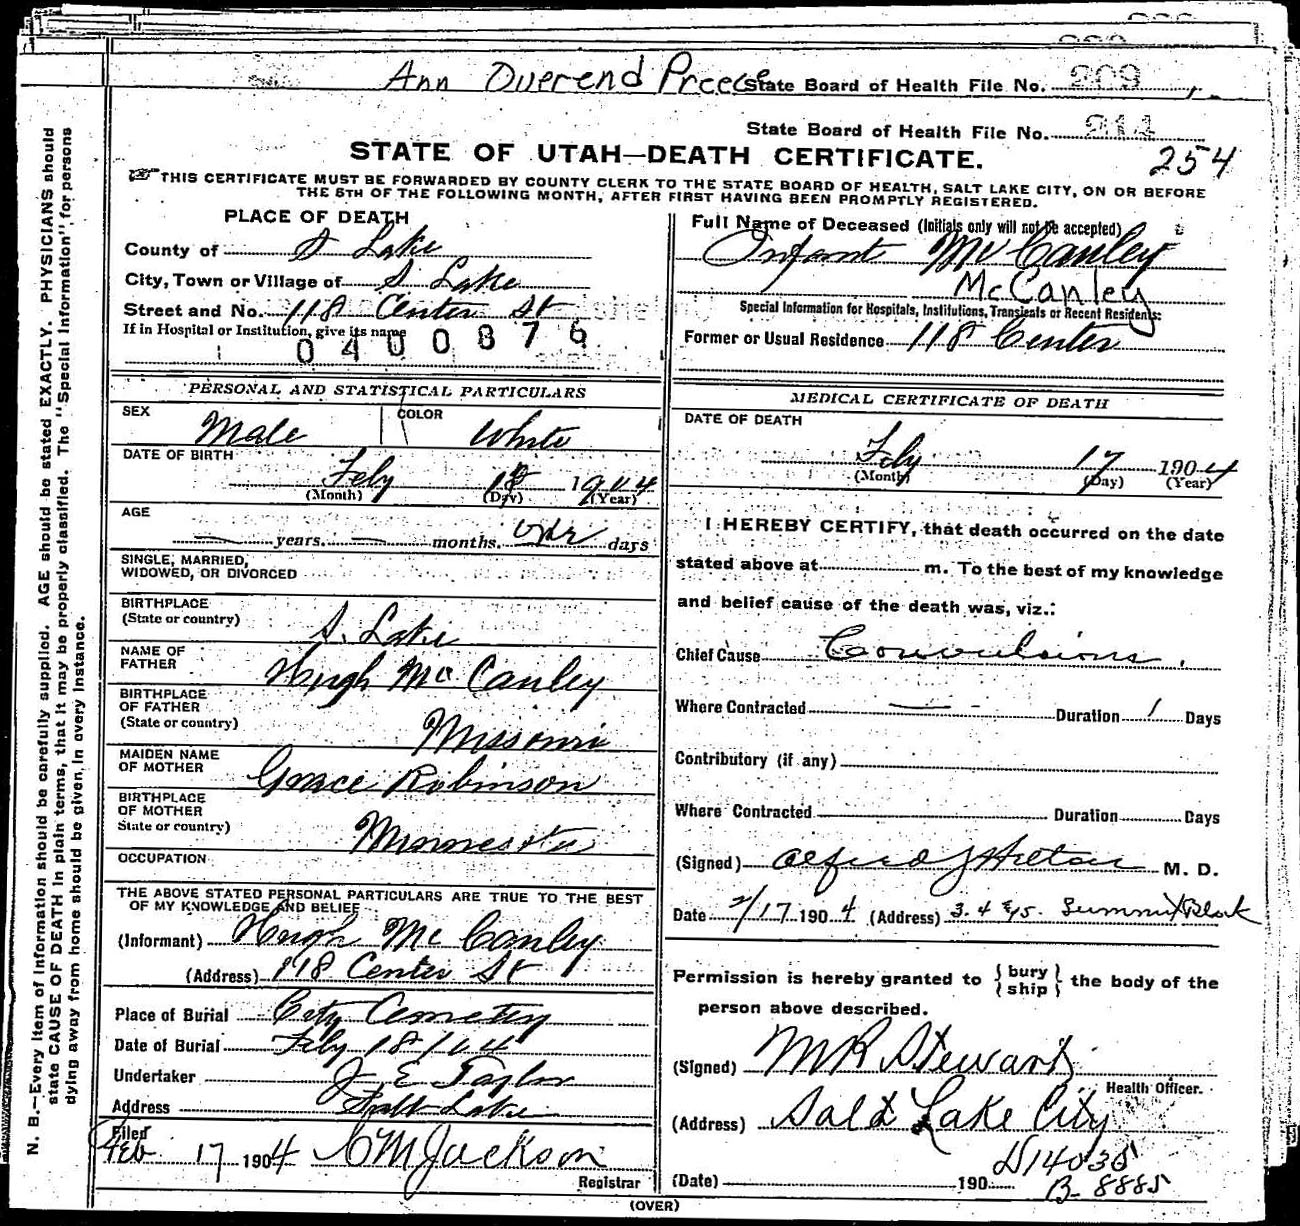 Ann Overend Preece State Board of Health File No. 209
State Board of Health File No. 211
254
STATE OF UTAH—DEATH CERTIFICATE.
THIS CERTIFICATE MUST BE FORWARDED BY COUNTY CLERK TO THE STATE BOARD OF HEALTH, SALT LAKE CITY, ON OR BEFORE
THE 5TH OF THE FOLLOWING MONTH, AFTER FIRST HAVING BEEN PROMPTLY REGISTERED.
N. B.—Every item of information should be carefully supplied. AGE should be stated EXACTLY. PHYSICIANS should
state CAUSE OF DEATH in plain terms, that it may be properly classified. The "Special Information", for persons
dying away from home should be given in every instance.
PLACE OF DEATH
County of S Lake
City, Town or Village of S. Lake
Street and No. 118 Center St
If in Hospital or Institution, give its name
0400876
PERSONAL AND STATISTICAL PARTICULARS
SEX Male COLOR White
DATE OF BIRTH
Feby 1904
(Month) (Day) (Year)
AGE
— years. — months. one days
SINGLE, MARRIED,
WIDOWED, OR DIVORCED
BIRTHPLACE
(State or country) S. Lake
NAME OF
FATHER Hugh McCanley
BIRTHPLACE
OF FATHER
(State or country) Missouri
MAIDEN NAME
OF MOTHER Grace Robinson
BIRTHPLACE
OF MOTHER
State or country) Minnesota
OCCUPATION
THE ABOVE STATED PERSONAL PARTICULARS ARE TRUE TO THE BEST
OF MY KNOWLEDGE AND BELIEF
(Informant) Hugh McCanley
(Address) 118 Center St
Place of Burial City Cemetery
Date of Burial Feby 18/04
Undertaker J. E Taylor
Address Salt Lake
Filed
Feb 17 1904 C M Jackson
Registrar
Full Name of Deceased (Initials only will not be accepted)
Infant McCanley
McCanley
Special Information for Hospitals, Institutions, Transients or Recent Residents:
Former or Usual Residence 118 Center
MEDICAL CERTIFICATE OF DEATH
DATE OF DEATH
Feby 17 1904
(Month) (Day) (Year)
I HEREBY CERTIFY, that death occurred on the date
stated above at m. To the best of my knowledge
and belief cause of the death was, viz.:
Chief Cause Convulsions.
Where Contracted — - Duration 1 Days
Contributory (if any)
Where Contracted Duration Days
(Signed) Alfred J Hilton M. D.
Date 2/17 1904 (Address) 3. 4 & 5. Summit Block
Permission is hereby granted to { bury } the body of the
{ ship }
person above described.
(Signed) M R Stewart
Health Officer.
(Address) Salt Lake City
D14035
(Date) 190
B-8885
(OVER)